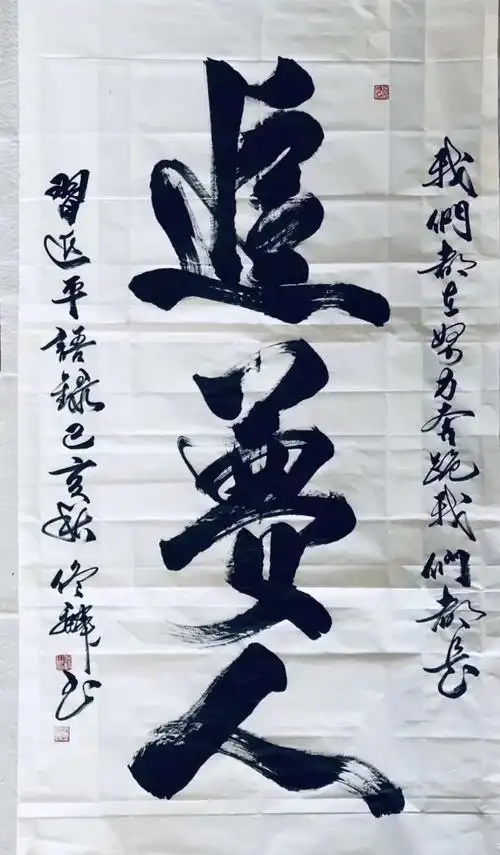 我們都在努力奔跑我們都是
追夢人
習近平語録己亥秋佟麟书